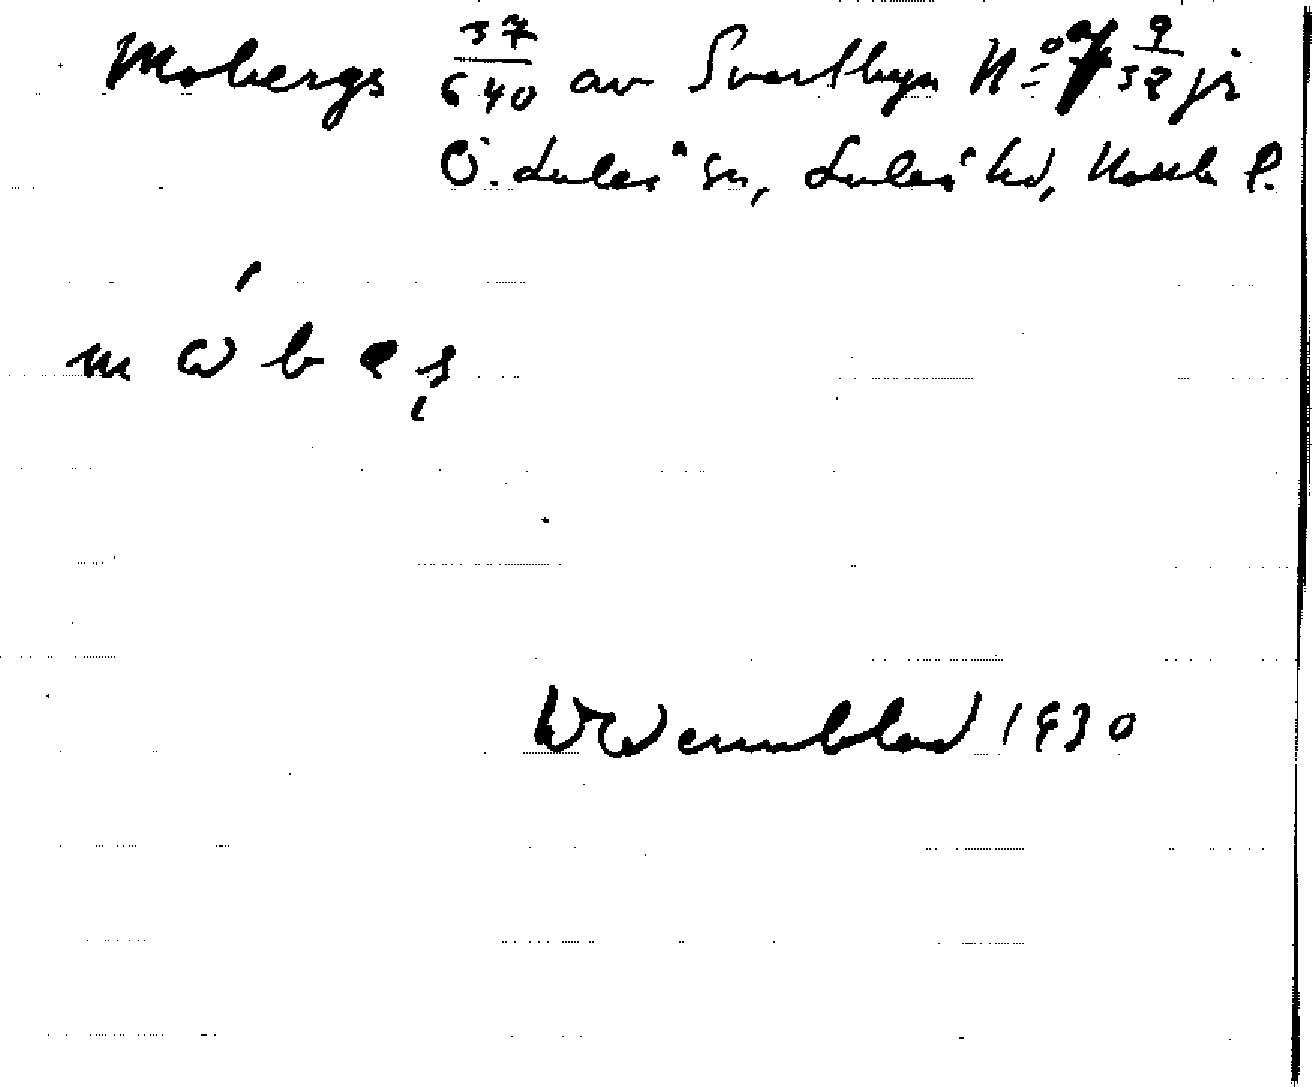 Mobergs 37/640 av Svartbyn No 7 9/32 jr
Ö. Luleå sn, Luleå hd, Norrb l.
W Wennblad 1930